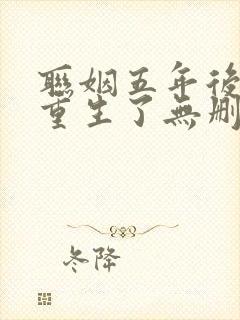 聯姻五年後
重生了無刪
冬降